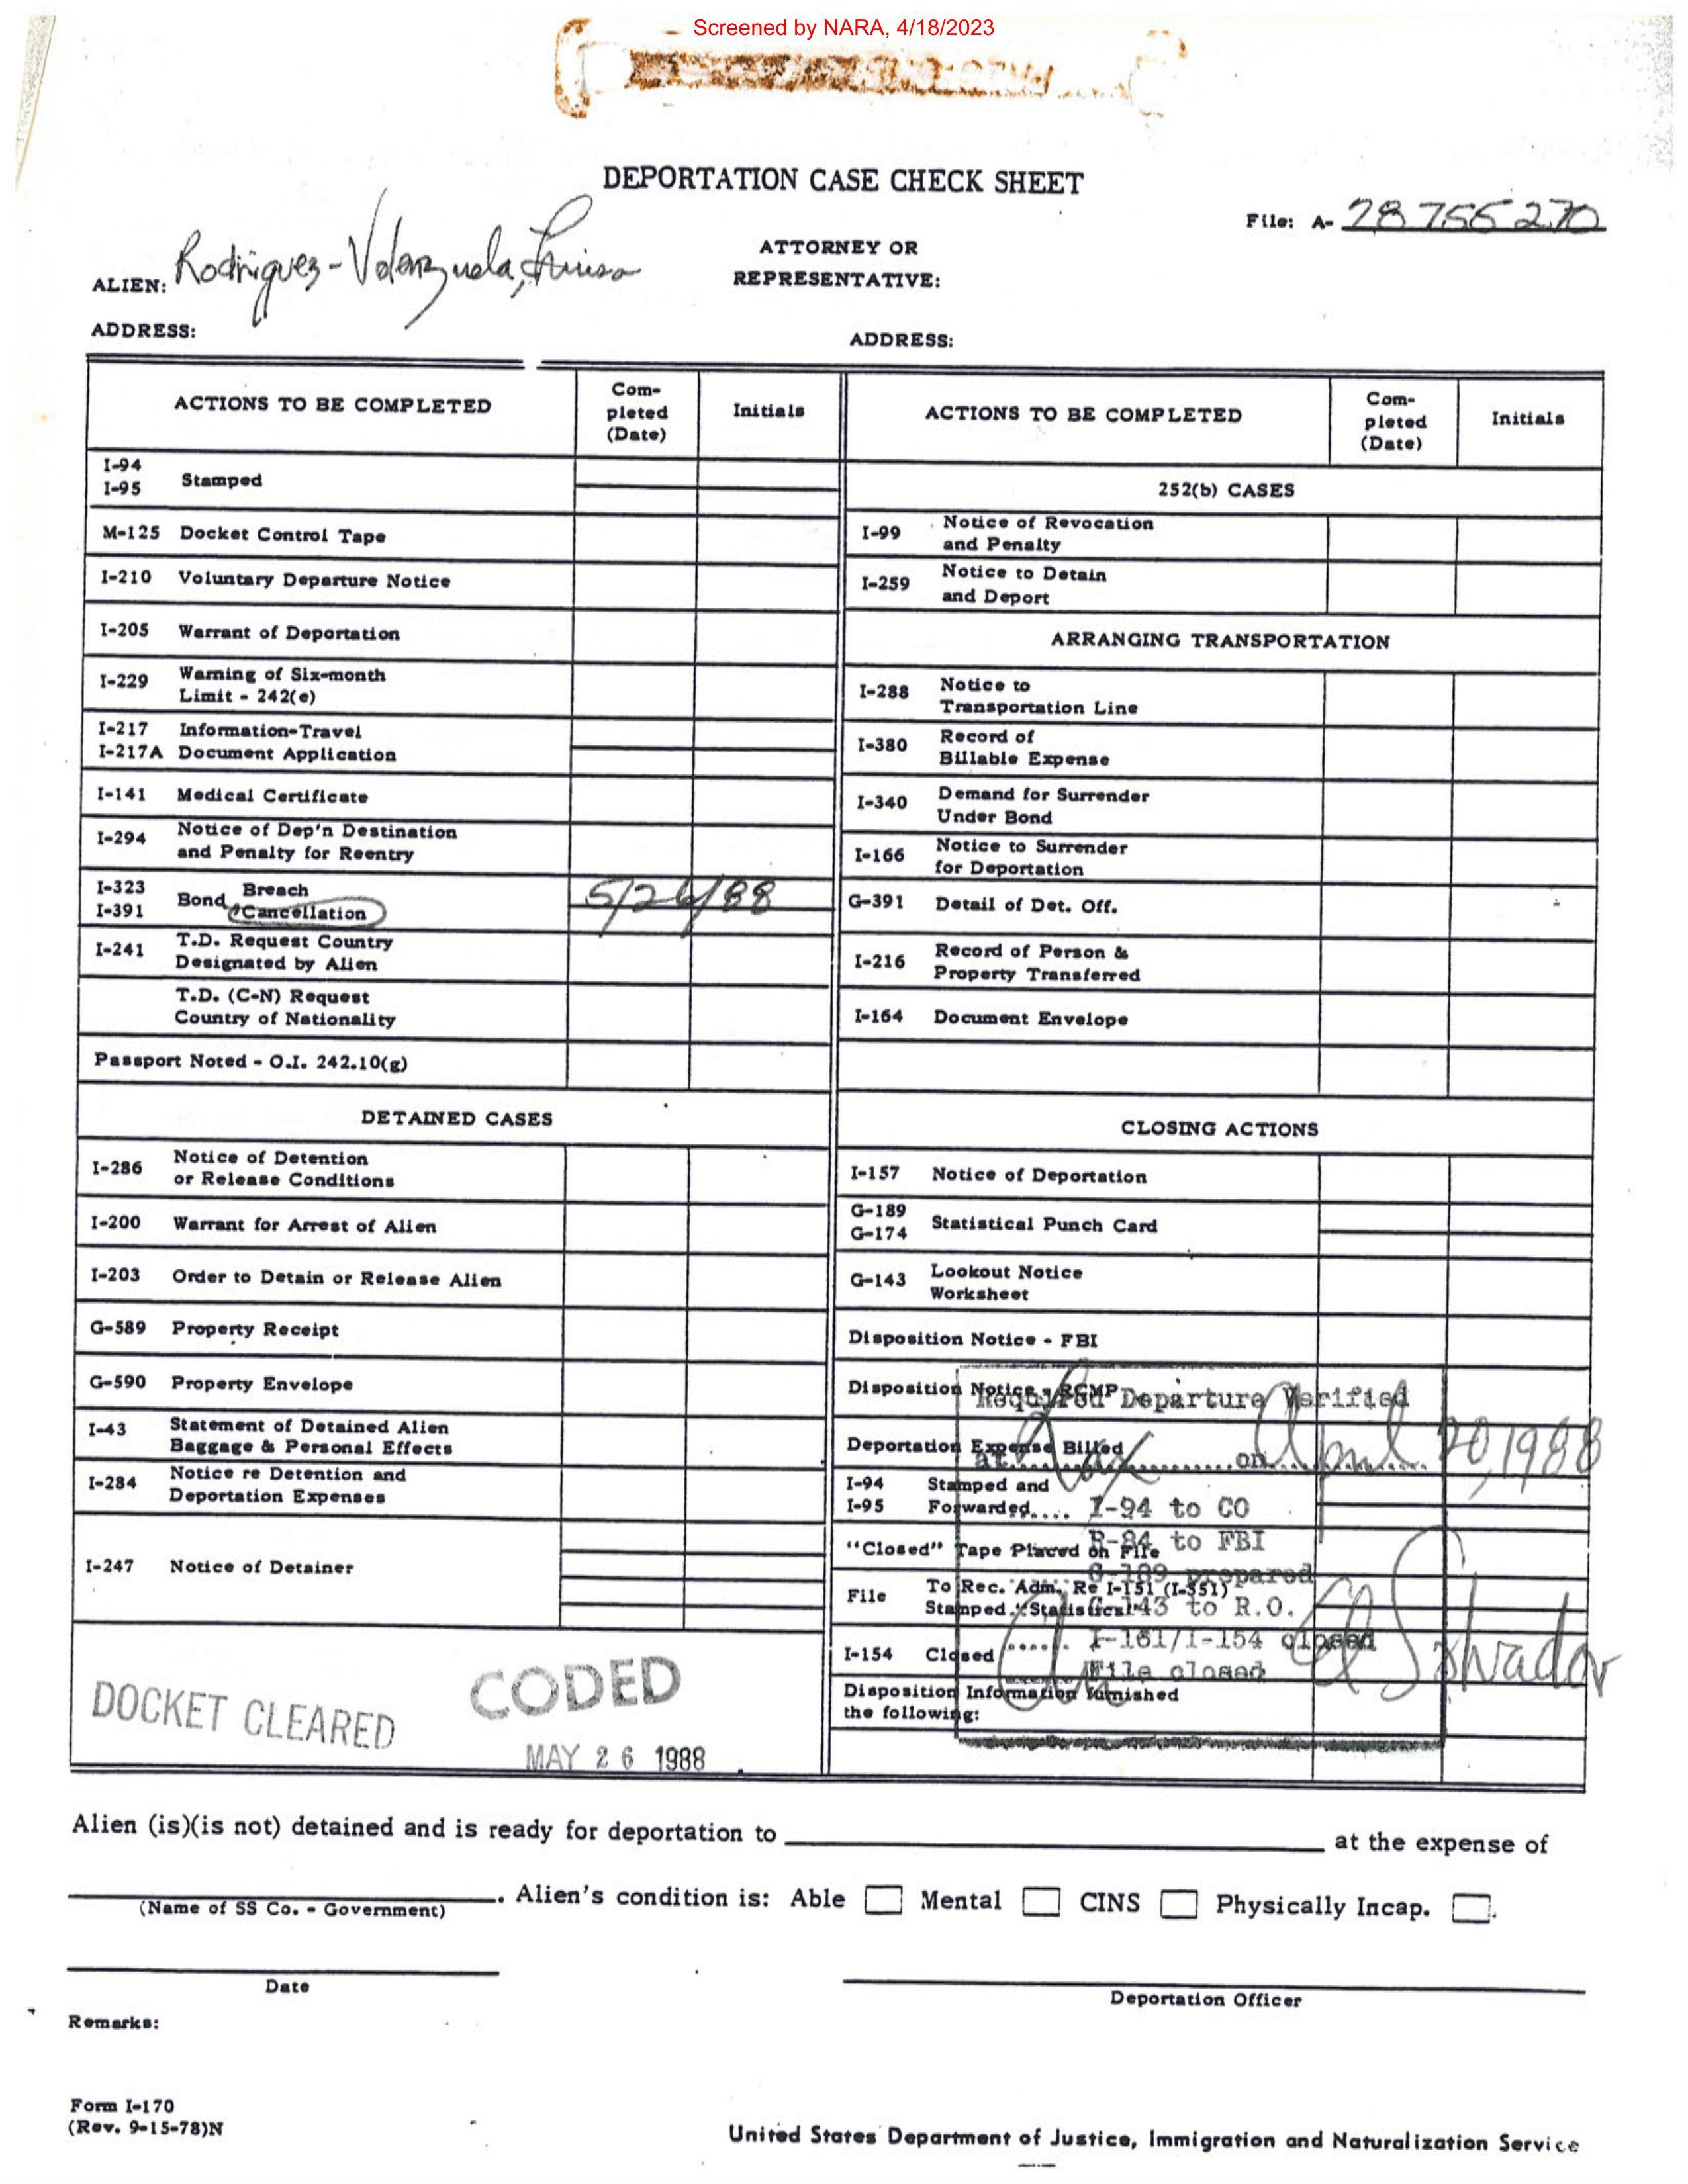 Screened by NARA, 4/18/2023
DEPORTATION CASE CHECK SHEET
File: A- 28 755 270
ALIEN: Rodriguez-Valenzuela,
ATTORNEY OR
REPRESENTATIVE:
ADDRESS:
ADDRESS:
ACTIONS TO BE COMPLETED
Com-
pleted
(Date)
Initials
I-94
I-95 Stamped
M-125 Docket Control Tape
I-210 Voluntary Departure Notice
I-205 Warrant of Deportation
I-229 Warning of Six-month
Limit - 242(e)
I-217 Information-Travel
I-217A Document Application
I-141 Medical Certificate
I-294 Notice of Dep'n Destination
and Penalty for Reentry
I-323 Bond Breach
I-391 Cancellation 5/26/88
I-241 T.D. Request Country
Designated by Alien
T.D. (C-N) Request
Country of Nationality
Passport Noted - O.I. 242.10(g)
DETAINED CASES
I-286 Notice of Detention
or Release Conditions
I-200 Warrant for Arrest of Alien
I-203 Order to Detain or Release Alien
G-589 Property Receipt
G-590 Property Envelope
I-43 Statement of Detained Alien
Baggage & Personal Effects
I-284 Notice re Detention and
Deportation Expenses
I-247 Notice of Detainer
DOCKET CLEARED
CODED
MAY 26 1988
ACTIONS TO BE COMPLETED
Com-
pleted
(Date)
Initials
252(b) CASES
I-99 Notice of Revocation
and Penalty
I-259 Notice to Detain
and Deport
ARRANGING TRANSPORTATION
I-288 Notice to
Transportation Line
I-380 Record of
Billable Expense
I-340 Demand for Surrender
Under Bond
I-166 Notice to Surrender
for Deportation
G-391 Detail of Det. Off.
I-216 Record of Person &
Property Transferred
I-164 Document Envelope
CLOSING ACTIONS
I-157 Notice of Deportation
G-189
G-174 Statistical Punch Card
G-143 Lookout Notice
Worksheet
Disposition Notice - FBI
Disposition Notice - RCMP
Deportation Expense Billed
I-94 Stamped and
I-95 Forwarded
"Closed" Tape Placed on File
File To Rec. Adm. Re I-151 (I-551)
Stamped "Statistics"
I-154 Closed
Disposition Information furnished
the following:
Required Departure Verified
at on April 20, 1988
I-94 to CO
R-84 to FBI
G-189 prepared
G-143 to R.O.
I-161/I-154 closed
File closed
El Salvador
Alien (is)(is not) detained and is ready for deportation to at the expense of
. Alien's condition is: Able Mental CINS Physically Incap. .
(Name of SS Co. - Government)
Date
Deportation Officer
Remarks:
Form I-170
(Rev. 9-15-78)N
United States Department of Justice, Immigration and Naturalization Service